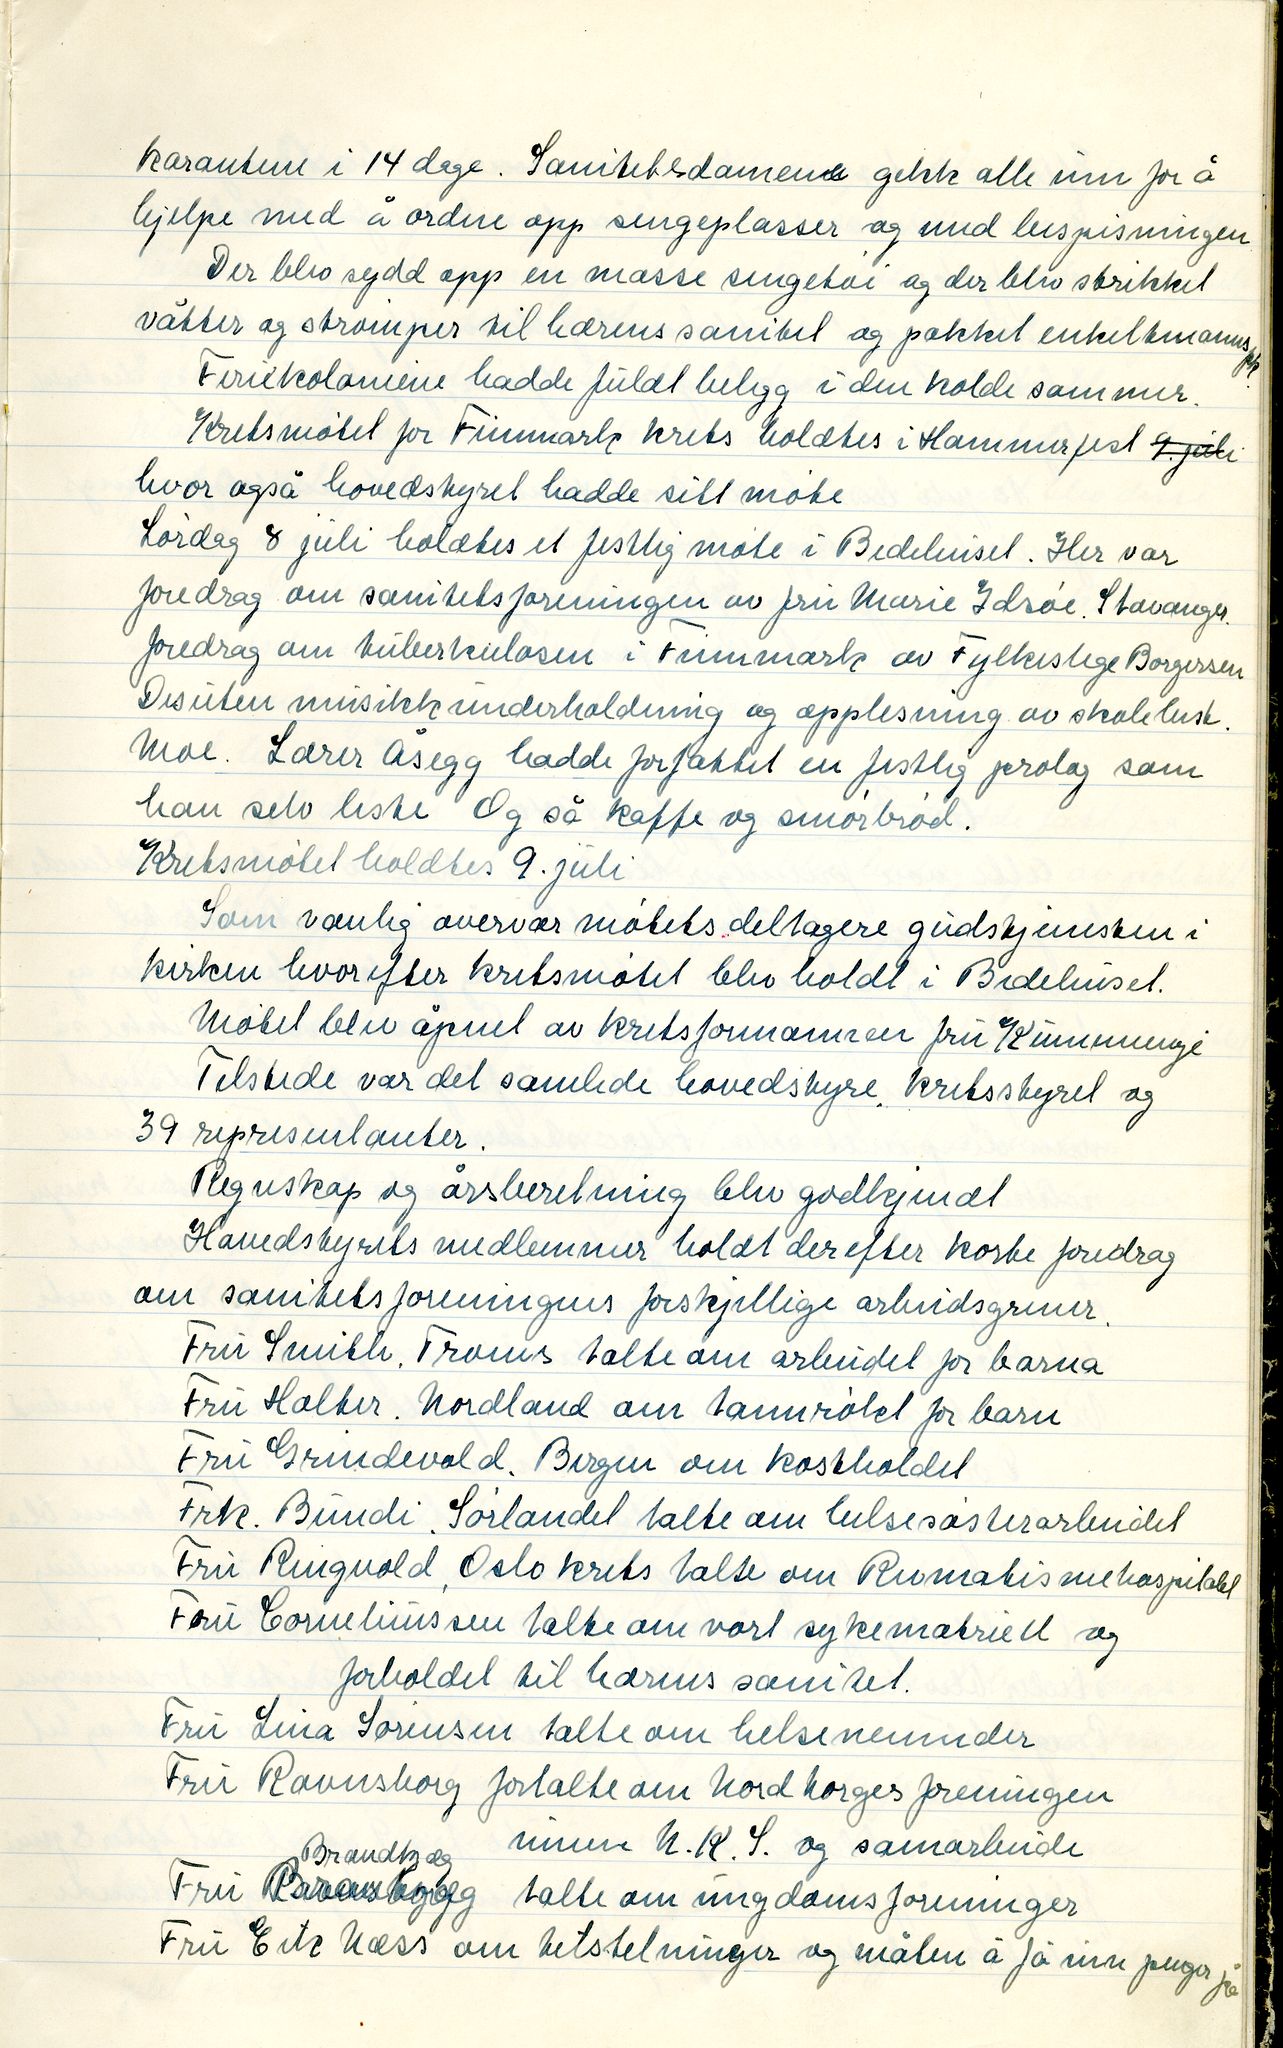 karantene i 14 dage. Sanitetsdamene gekk alle inn for å
hjelpe med å ordne opp sengeplasser og med bespisningen
Der blev sydd opp en masse sengetöi og der blev strikket
våtter og strömper til hærens sanitet og pakket enkeltmannspk.
Feriekoloniene hadde fuldt belegg i den kolde sommer.
Kretsmötet for Finnmark krets holdtes i Hammerfest 9. juli
hvor også hovedstyret hadde sitt möte
Lördag 8 juli holdtes et festlig möte i Bedehuset. Her var
foredrag om sanitetsforeningen av fru Marie Idsöe. Stavanger.
foredrag om tuberkulosen i Finnmark av Fylkeslege Borgersen
Desuten musikkunderholdning og opplesning av skolebest.
Moe. Lærer Åsegg hadde forfattet en festlig prolog som
han selv leste Og så kaffe og smörbröd.
Kretsmötet holdtes 9. juli
Som vanlig overvar mötets deltagere gudstjenesten i
kirken hvorefter kretsmötet blev holdt i Bedehuset.
Mötet blev åpnet av kretsformannen fru Kummenje
Tilstede var det samlede hovedstyre, kretsstyret og
39 representanter.
Regnskap og årsberetning blev godkjendt
Hovedstyrets medlemmer holdt derefter korte foredrag
om sanitetsforeningens forskjellige arbeidsgrener.
Fru Smith, Troms talte om arbeidet for barna
Fru Holter. Nordland om tannröket for barn
Fru Grindevold. Bergen om kostholdet
Frk. Bundi, Sörlandet talte om helsesösterarbeidet
Fru Ringvold, Oslo krets talte om Revmatismehospitalet
Fru Corneliussen talte om vort sykematriell og
forholdet til hærens sanitet.
Fru Lina Sörensen talte om helsenemnder
Fru Ravnsborg fortalte om Nord Norges foreningen
innen N.K.S. og samarbeide
Brandtzæg
Fru talte om ungdomsforeninger
Fru Eitz Næss om tilstelninger og måten å få inn penger på